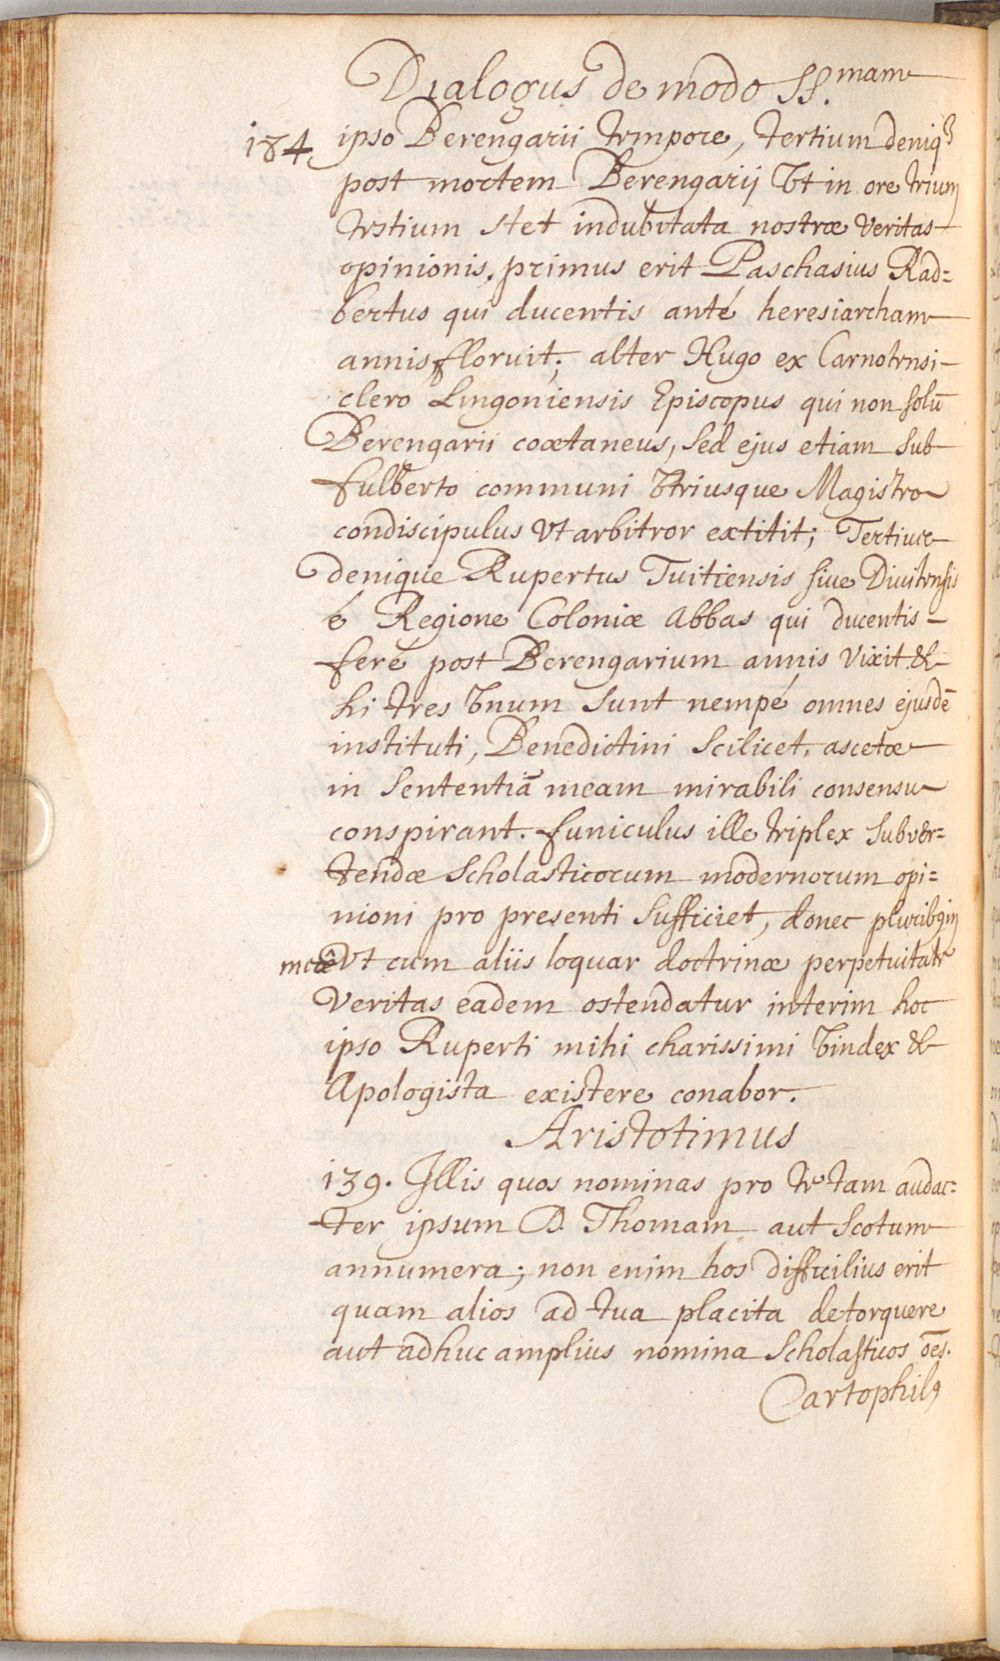 Dialogus de modo SS.mam
184 ipso Berengarii tempore, tertium deniq3
post mortem Berengarij Vt in ore trium
testium stet indubitata nostræ Veritas
opinionis. primus erit Paschasius Rad=
bertus qui ducentis anté heresiarcham
annis floruit; alter Hugo ex Carnotensi
clero Lingoniensis Episcopus qui non solū
Berengarii coætaneus, sed ejus etiam sub
fulberto communi Vtriusque Magistro
condiscipulus Vt arbitror extitit; Tertius
denique Rupertus Tuitiensis sive Divitensis
é Regione Coloniæ Abbas qui ducentis
feré post Berengarium annis Vixit &
hi tres Vnum sunt nempé omnes ejusdē
instituti, Benedictini scilicet, ascetæ
in sententiā meam mirabili consensu
conspirant. funiculus ille triplex subver=
tendæ Scholasticorum modernorum opi=
nioni pro presenti sufficiet, donec
Vt cum aliis loquar doctrinæ perpetuitate
Veritas eadem ostendatur interim hoc
ipso Ruperti mihi charissimi Vindex &
Apologista existere conabor.
Aristotimus
139. Illis quos nominas pro te tam audac=
ter ipsum D. Thomam aut Scotum
annumera; non enim hos difficilius erit
quam alios ad tua placita detorquere
aut adhuc amplius nomina Scholasticos oēs.
Cartophil9